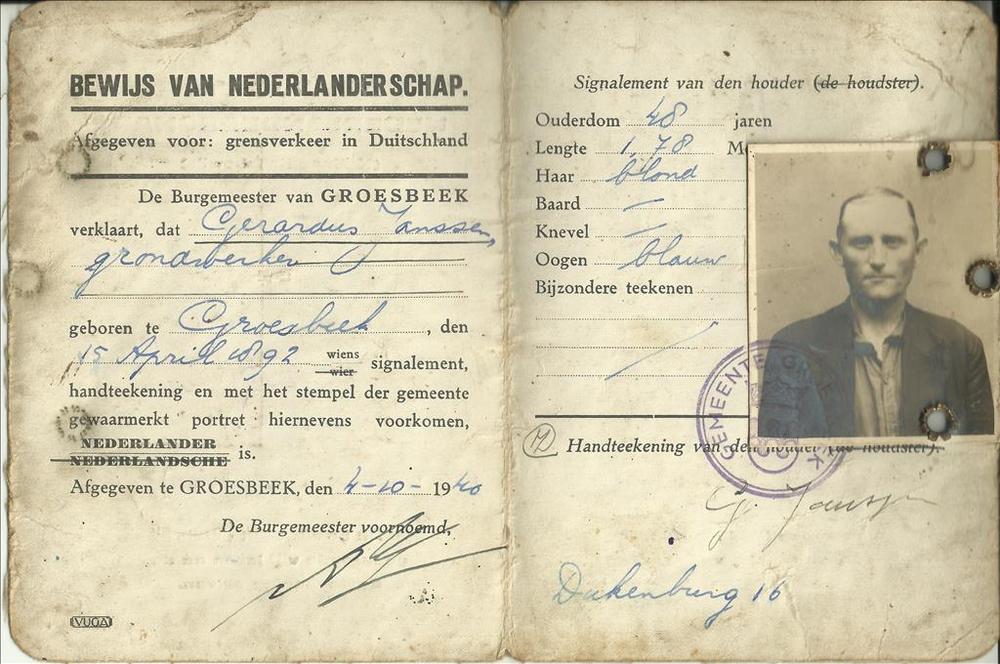 BEWIJS VAN NEDERLANDERSCHAP.
Afgegeven voor: grensverkeer in Duitschland
De Burgemeester van GROESBEEK
verklaart, dat Gerardus Janssen,
grondwerker
geboren te Groesbeek, den
15 April 1892 wiens
wier signalement,
handteekening en met het stempel der gemeente
gewaarmerkt portret hiernevens voorkomen,
NEDERLANDER
NEDERLANDSCHE is.
Afgegeven te GROESBEEK, den 4-10-1940
De Burgemeester voornoemd,
VUGA
Signalement van den houder (de houdster).
Ouderdom 48 jaren
Lengte 1,78 Me
Haar blond
Baard —
Knevel —
Oogen blauw
Bijzondere teekenen
GEMEENTE
Handteekening van den houder (de houdster).
G. Janssen
Dukenburg 16